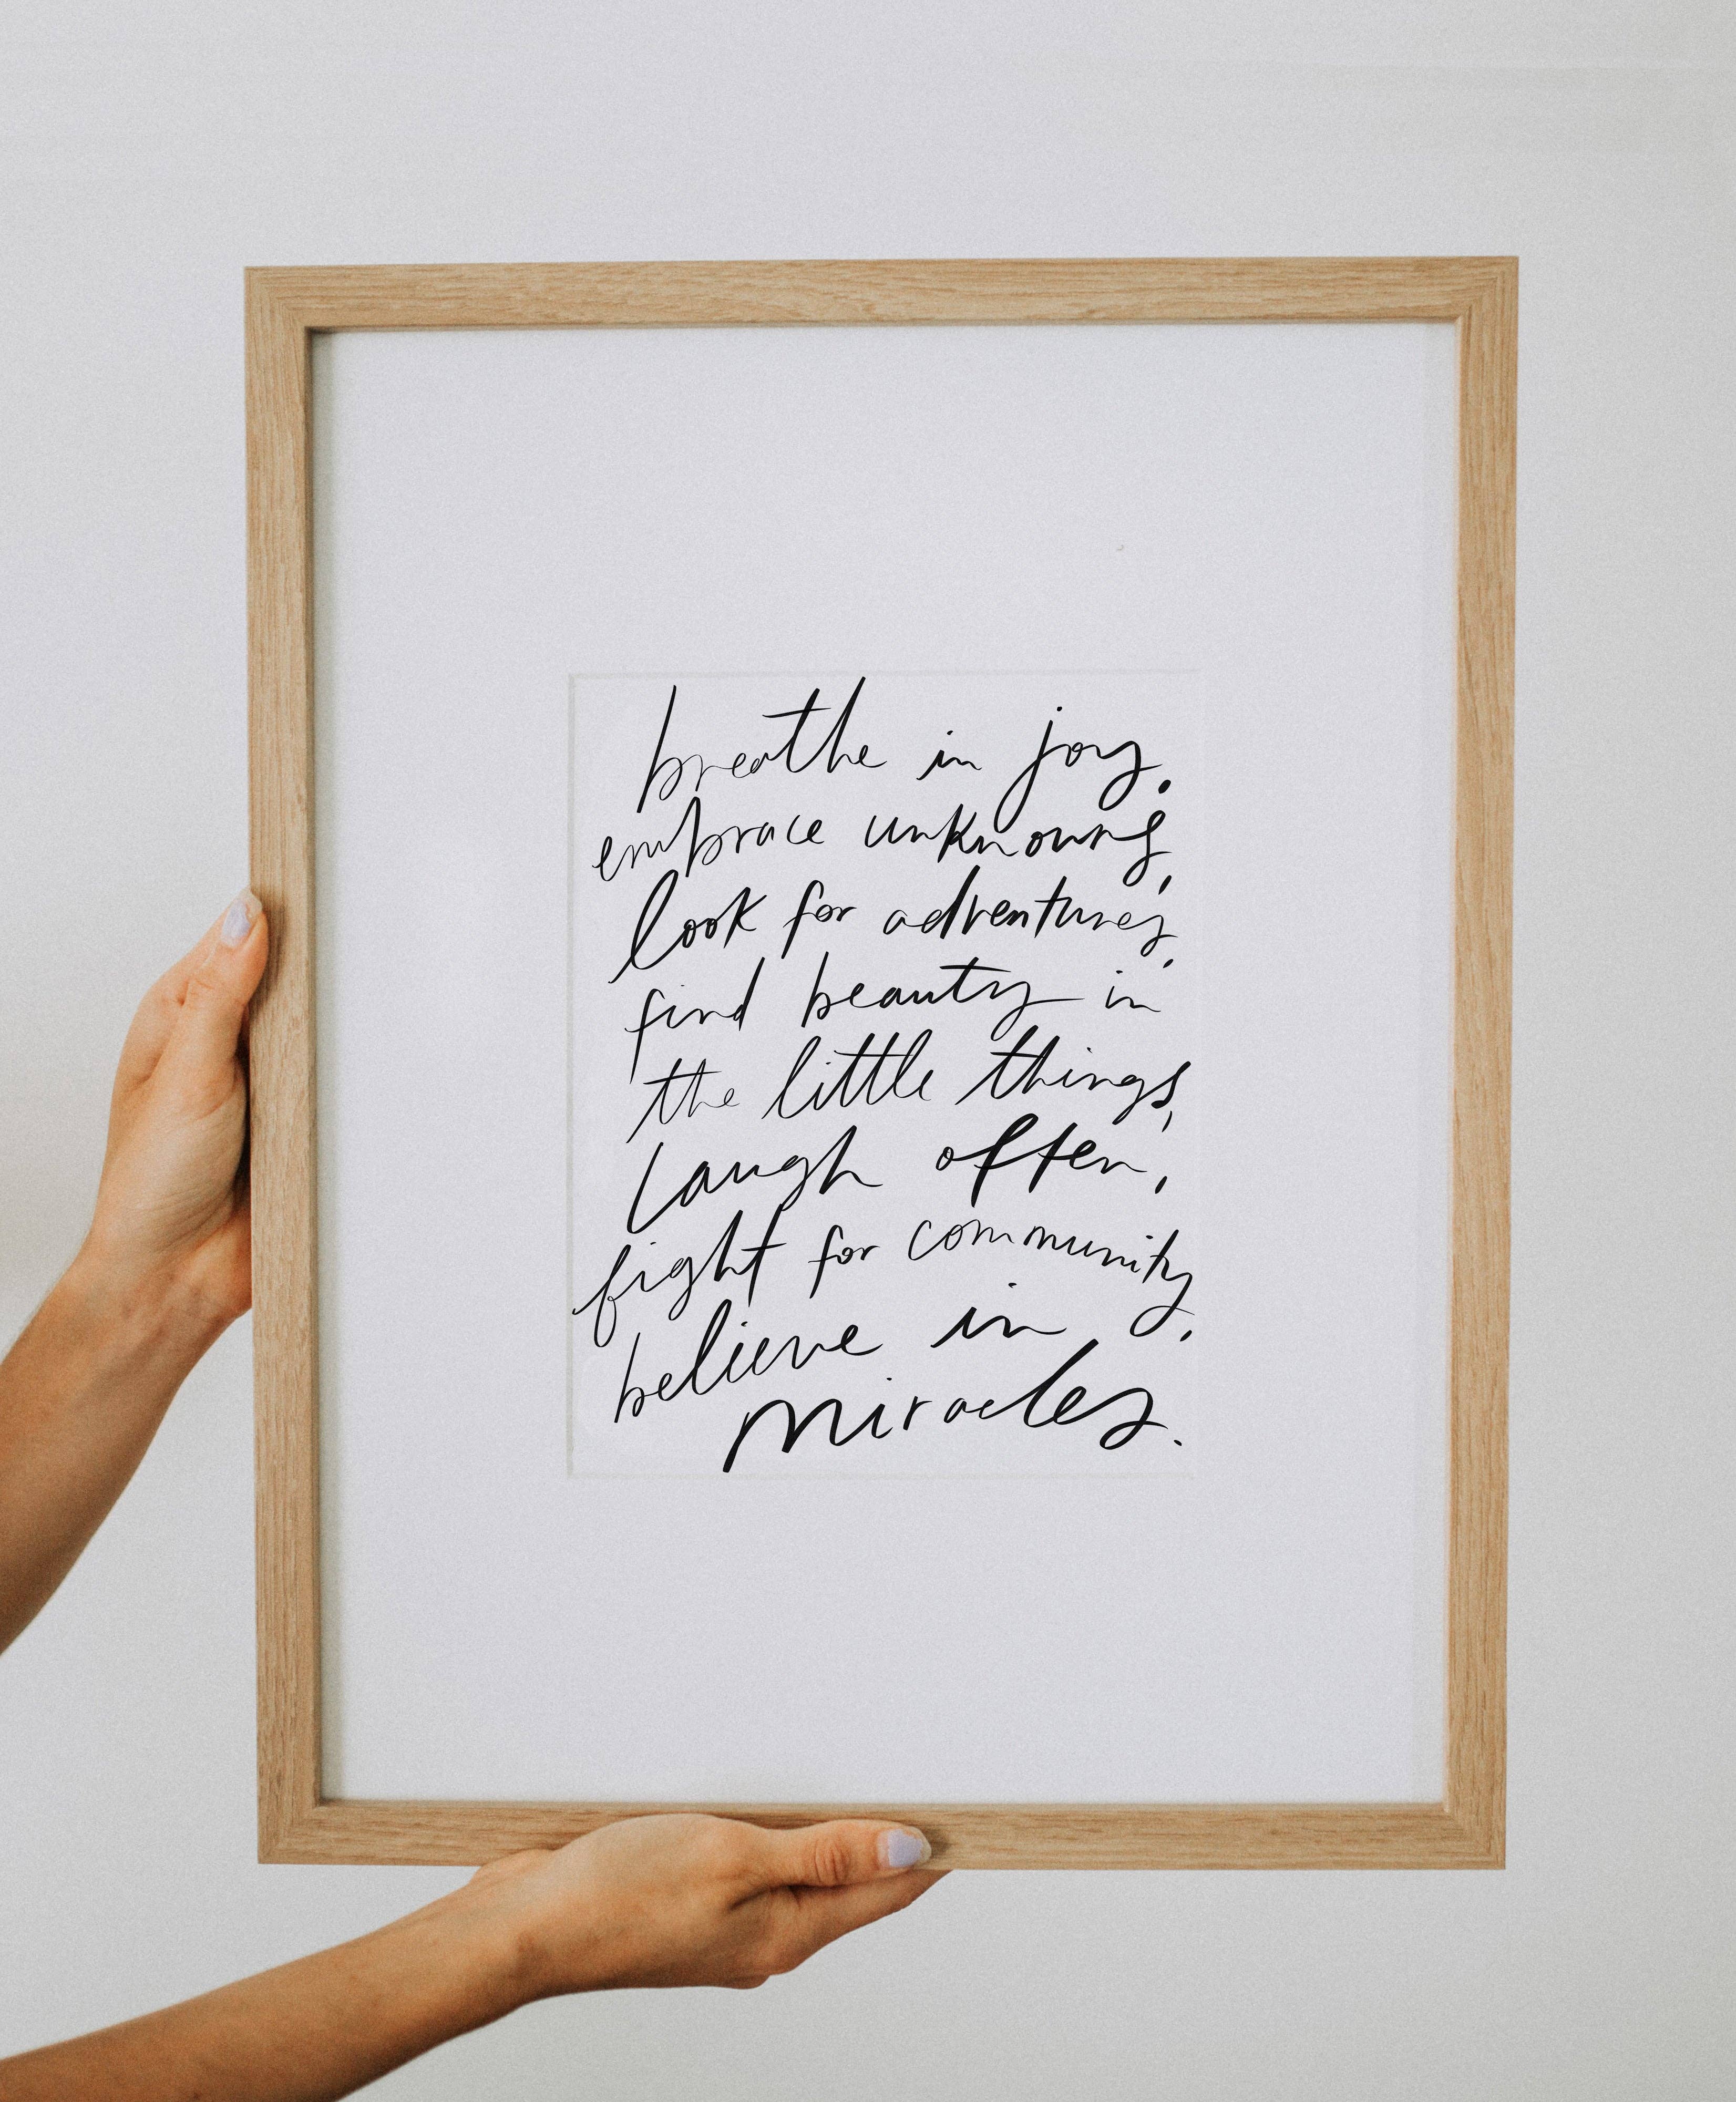 breathe in joy.
embrace unknowns,
look for adventures,
find beauty in
the little things,
laugh often,
fight for community,
believe in
miracles.